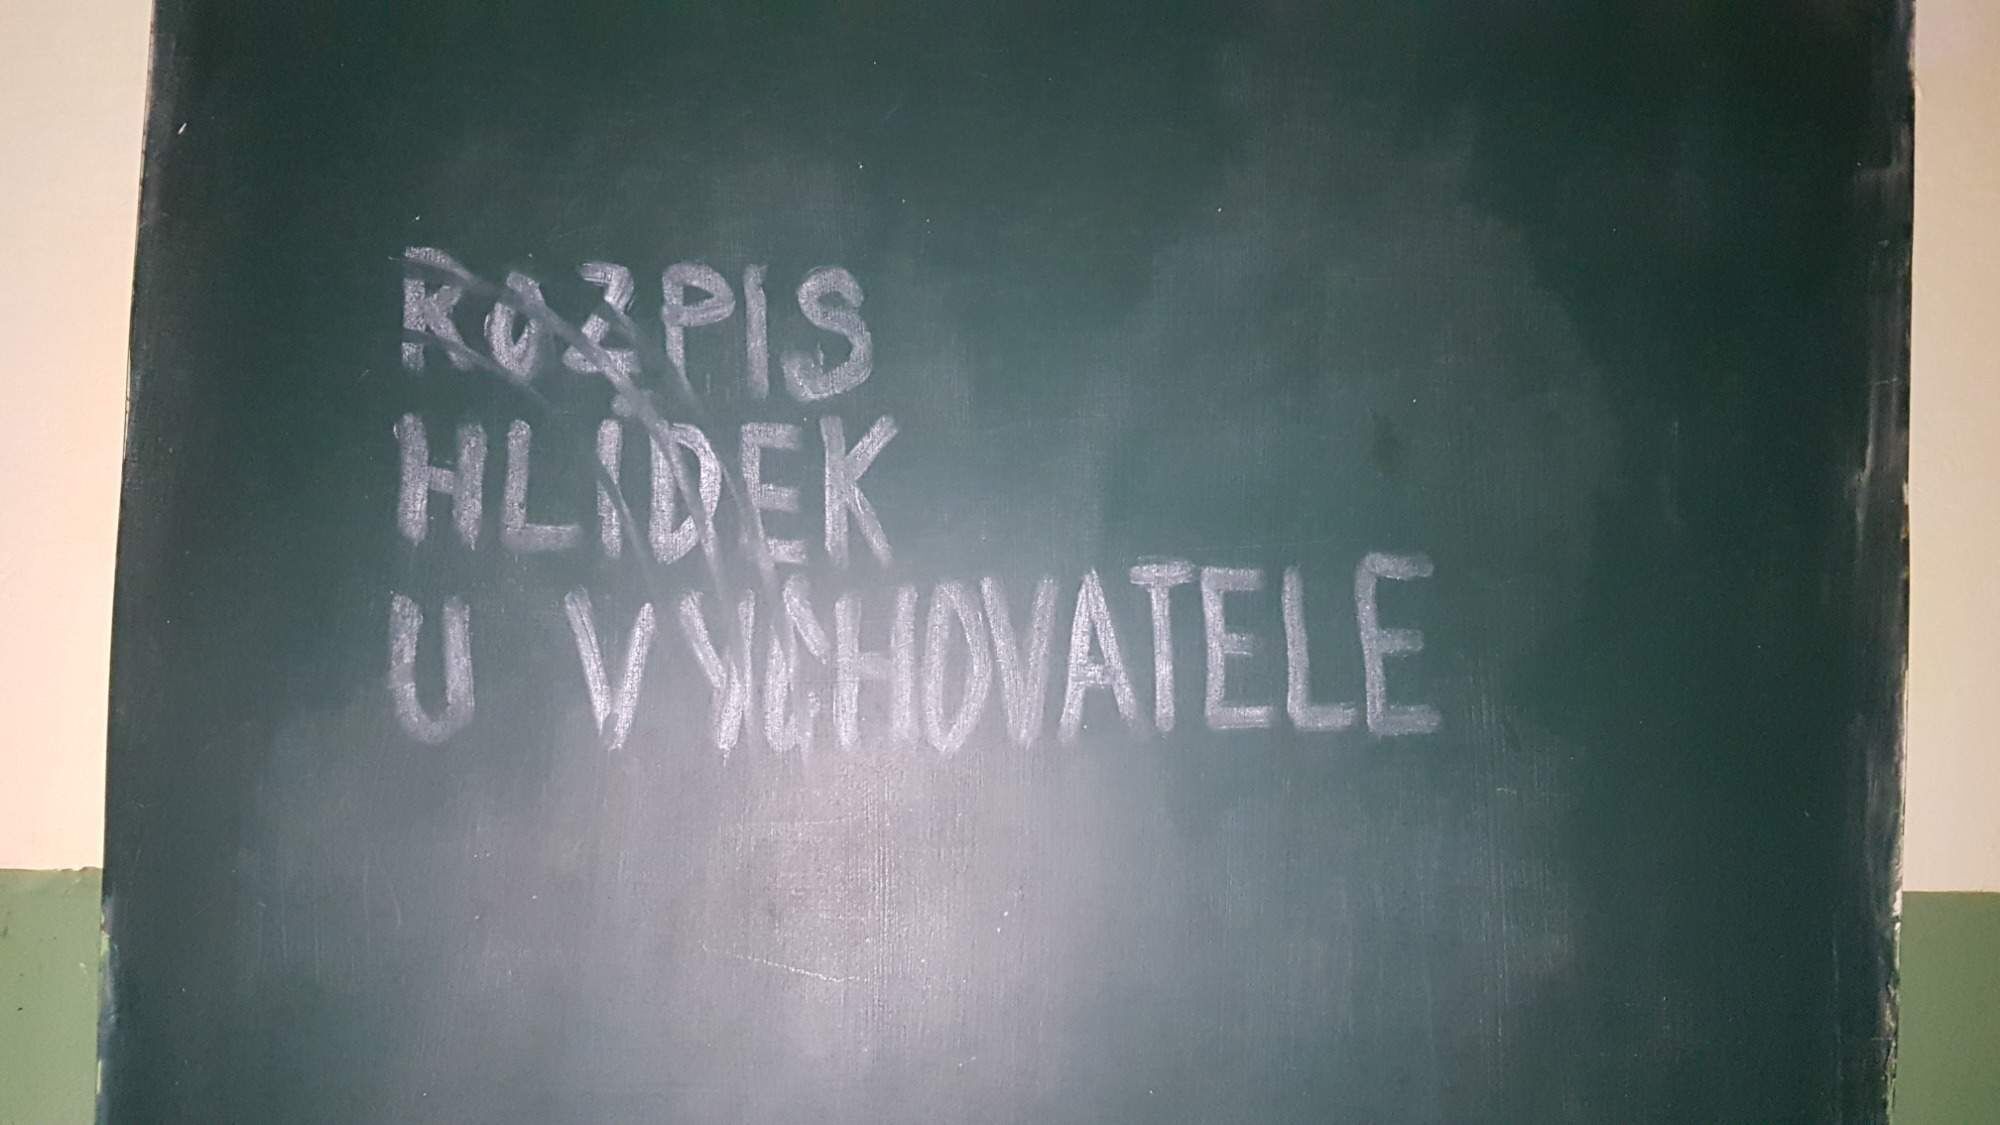 ROZPIS
HLÍDEK
U VYCHOVATELE